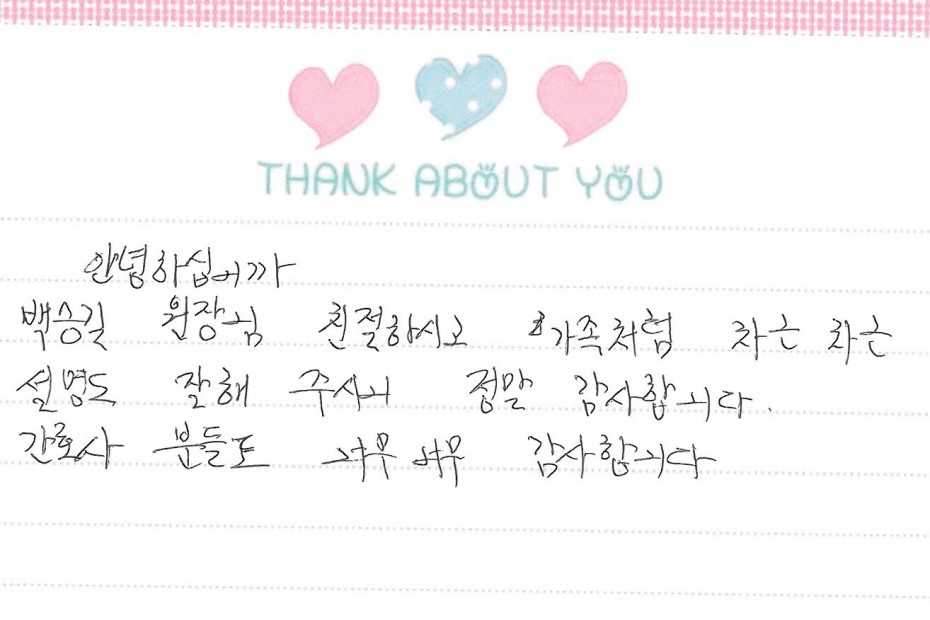 THANK ABOUT YOU
안녕하십니까
백승길 원장님 친절하시고 가족처럼 차근 차근
설명도 잘해 주시니 정말 감사합니다.
간호사 분들도 너무 너무 감사합니다